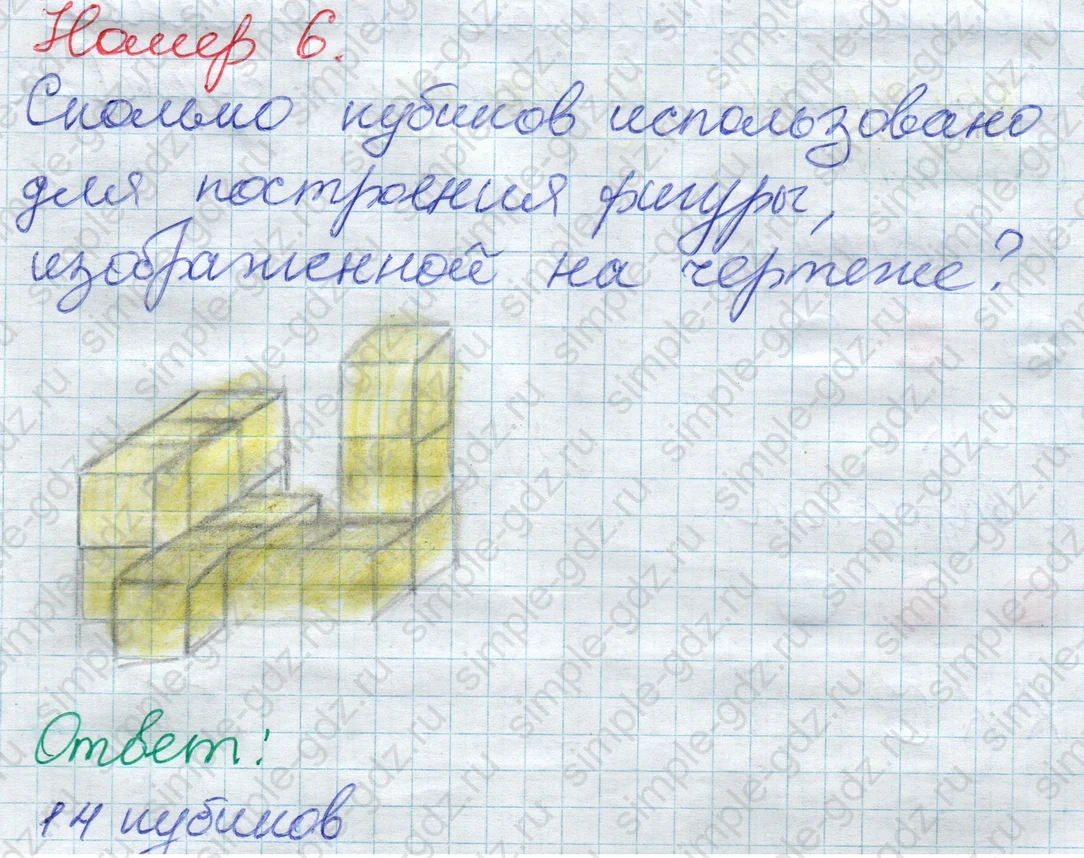 Номер 6.
Сколько кубиков использовано
для построения фигуры,
изображенной на чертеже?
Ответ:
14 кубиков
simple-gdz.ru